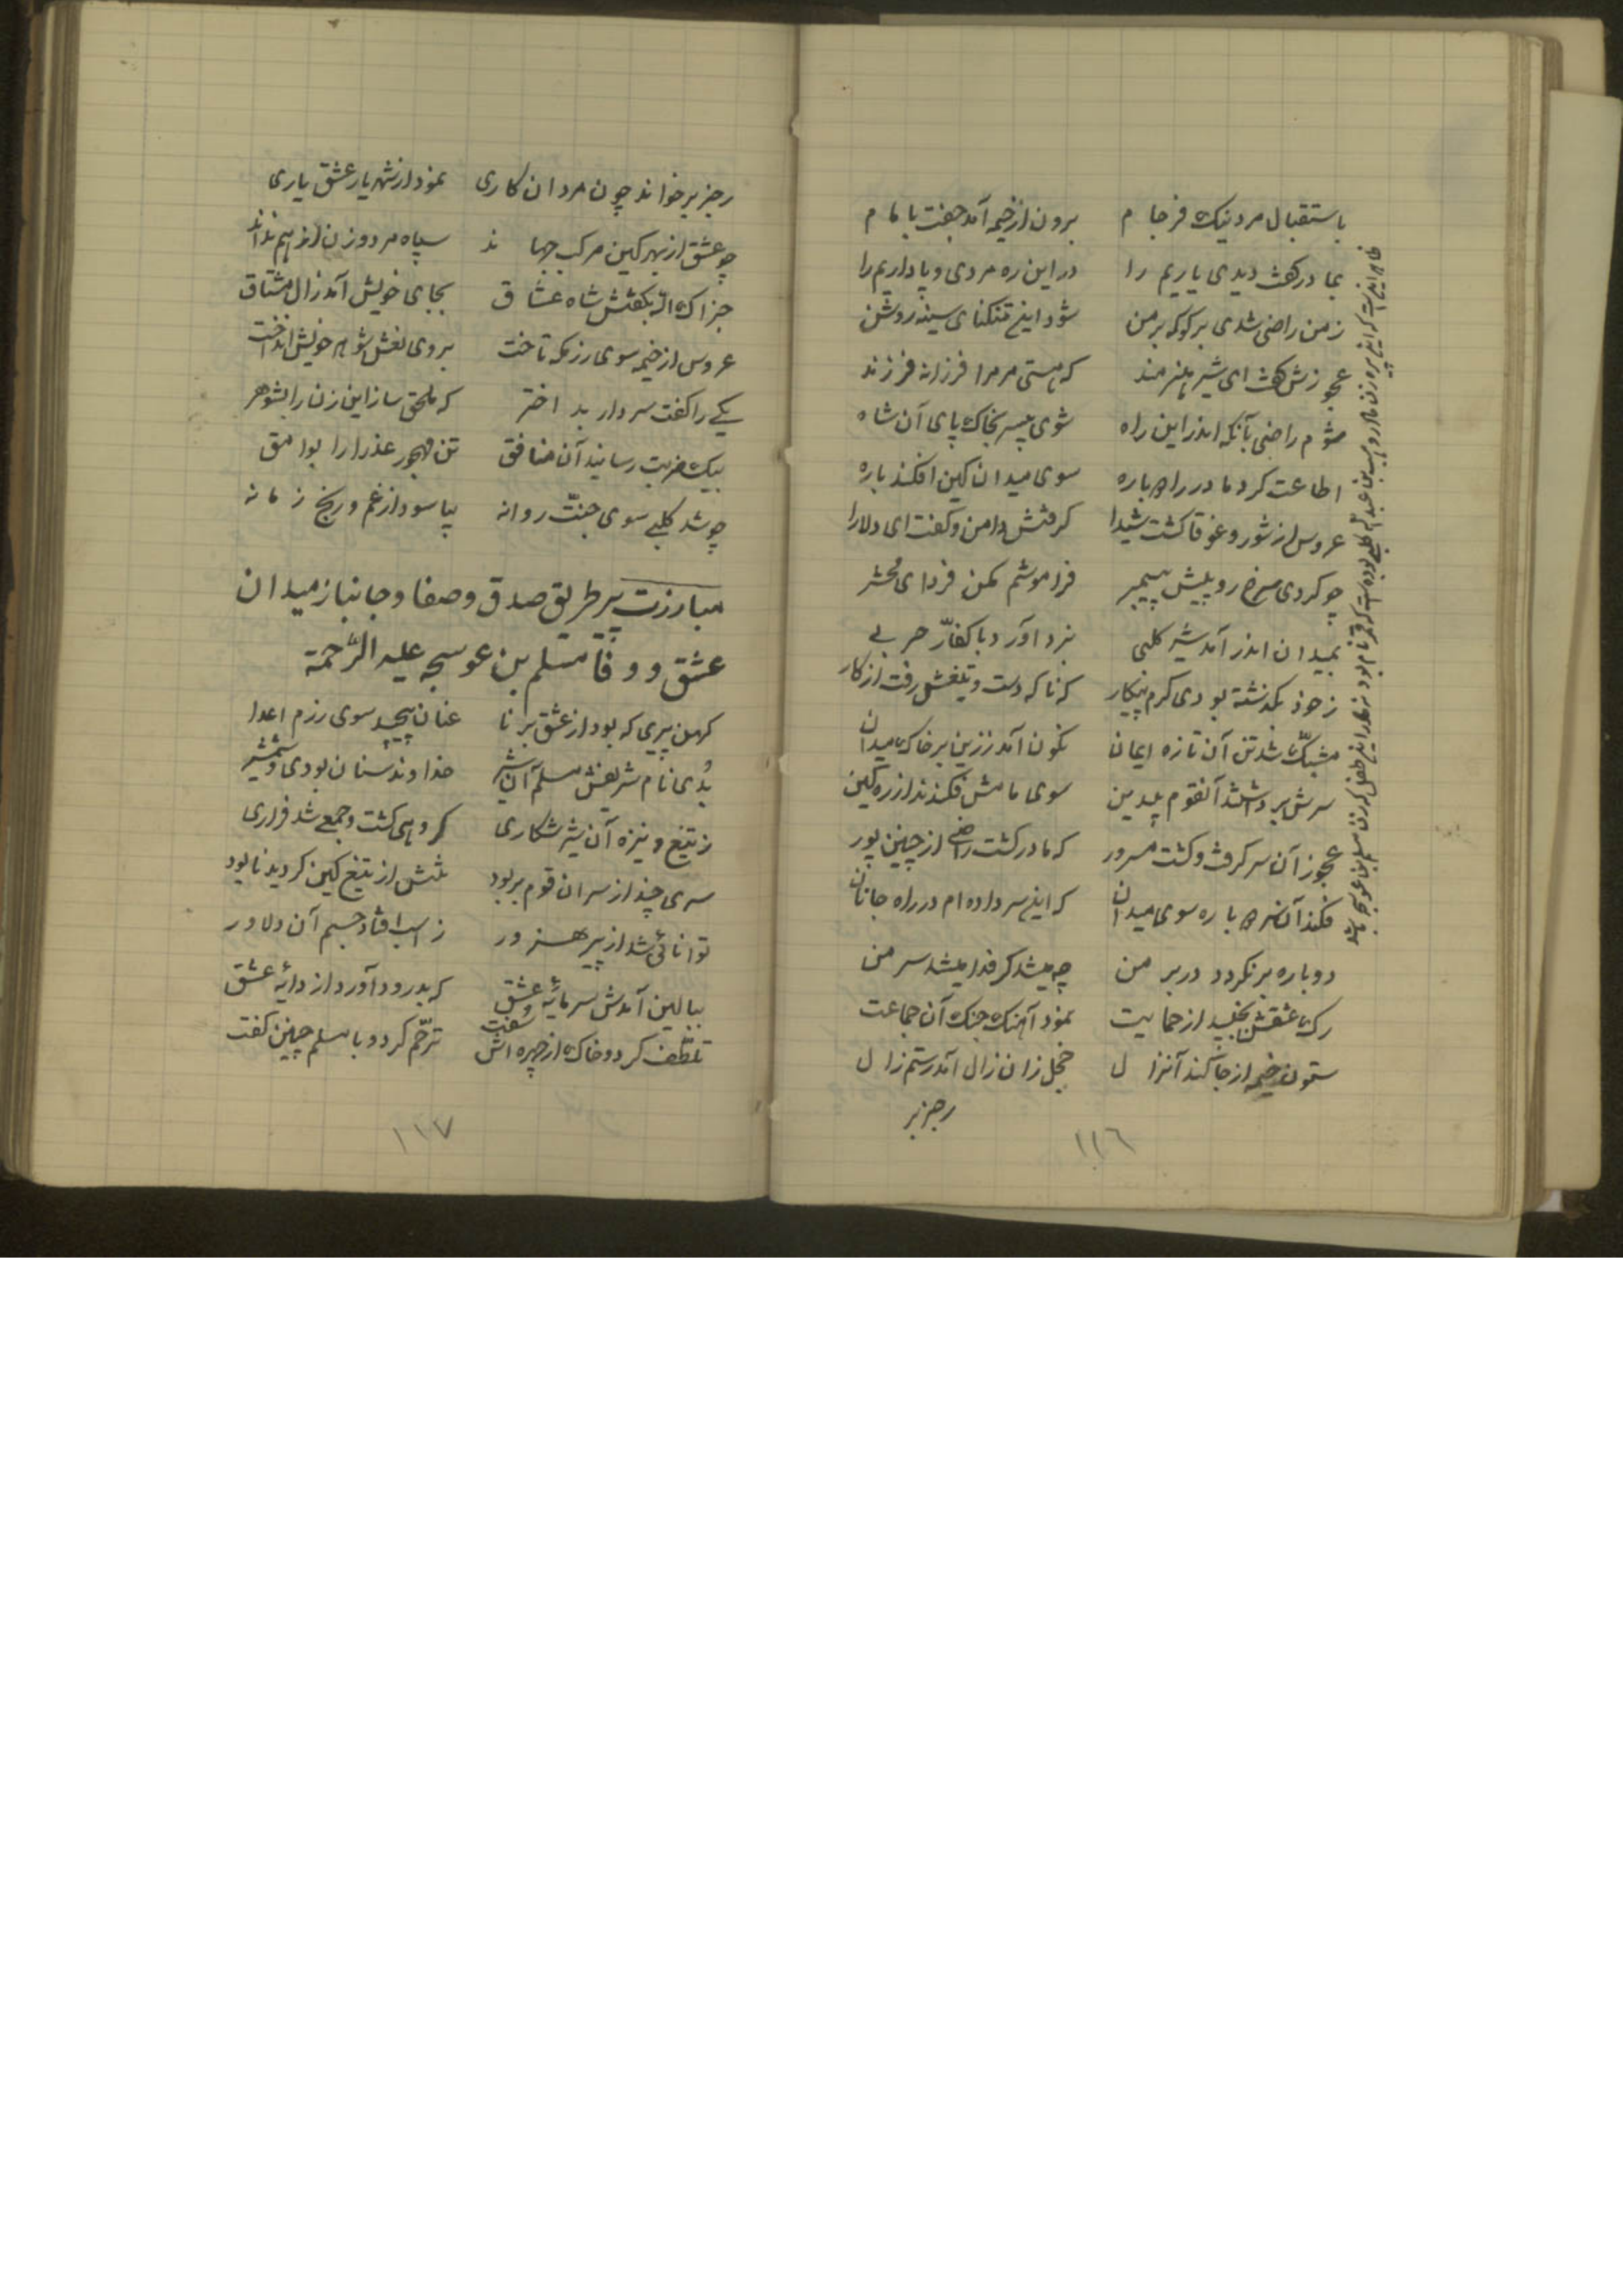 باستقبال مرد نیک فرجام برون از خیمه آمد جفت با مام
بمادر گفت دیدی یاریم را در این ره مردی و پاداریم را
ز من راضی شدی برگو که بر من شود این تنگنای سینه روشن
عجوزش گفت ای شیر هنرمند که هستی مر مرا فرزانه فرزند
شوم راضی بآنکه اندر این راه شوی بیسر بخاک پای آن شاه
اطاعت کرد مادر را دوباره سوی میدان کین افکند باره
عروس از شور و غوغا گشت شیدا گرفتش دامن و گفت ای دلارا
چو کردی سرخ رو پیش پیمبر فراموشم مکن فردای محشر
بمیدان اندر آمد شیر کلبی نبرد آورد با کفّار حربی
ز خود بگذشته بودی گرم پیکار که ناگه دست و تیغش رفت از کار
مشبّک شد تن آن تازه ایمان نگون آمد ز زین بر خاک میدان
سرش ببریدند آنقوم بیدین سوی مامش فکندند از ره کین
عجوز آن سر گرفت و گشت مسرور که مادر گشت راضی از چنین پور
فکند آن سر دوباره سوی میدان که این سر داده‌ام در راه جانان
دوباره برنگردد در بر من چه میشد گر فدا میشد سر من
رک عشقش بجنبید از حمایت نمود آهنگ جنگ آن جماعت
ستون خیمه از جا کند آنزال خجل زان زال آمد رستم زال
رجز بر
١١٦
رجز بر خواند چون مردان کاری نمود از شهریار عشق یاری
چو عشق از بهر کین مرکب جهاند سپاه مرد و زن از هم نداند
جزاک الله بگفتش شاه عشاق بجای خویش آمد زال مشتاق
عروس از خیمه سوی رزمگه تاخت بروی نعش شوهر خویش انداخت
یکی را گفت سردار بد اختر که ملحق ساز این زن را بشوهر
بیک ضربت رسانید آن منافق تن مهجور عذرا را بوامق
چو شد کلبی سوی جنّت روانه بیاسود از غم و رنج زمانه
مبارزت پیر طریق صدق و صفا و جانباز میدان
عشق و وفا مسلم بن عوسجه علیه الرّحمة
کهن پیری که بود از عشق برنا عنان پیچید سوی رزم اعدا
بُدی نام شریفش مسلم آن شیر خداوند سنان بودی و شمشیر
ز تیغ و نیزه آن شیر شکاری گروهی کشت و جمعی شد فراری
سری چند از سران قوم بربود تنش از تیغ کین گردید نابود
توانائی شد از پیر هنرور ز اسب افتاد جسم آن دلاور
ببالین آمدش سرمایهٔ عشق که بدرود آورد از دایهٔ عشق
تلطّف کرد و خاک از چهره‌اش سُفت ترحّم کرد و با مسلم چنین گفت
١١٧